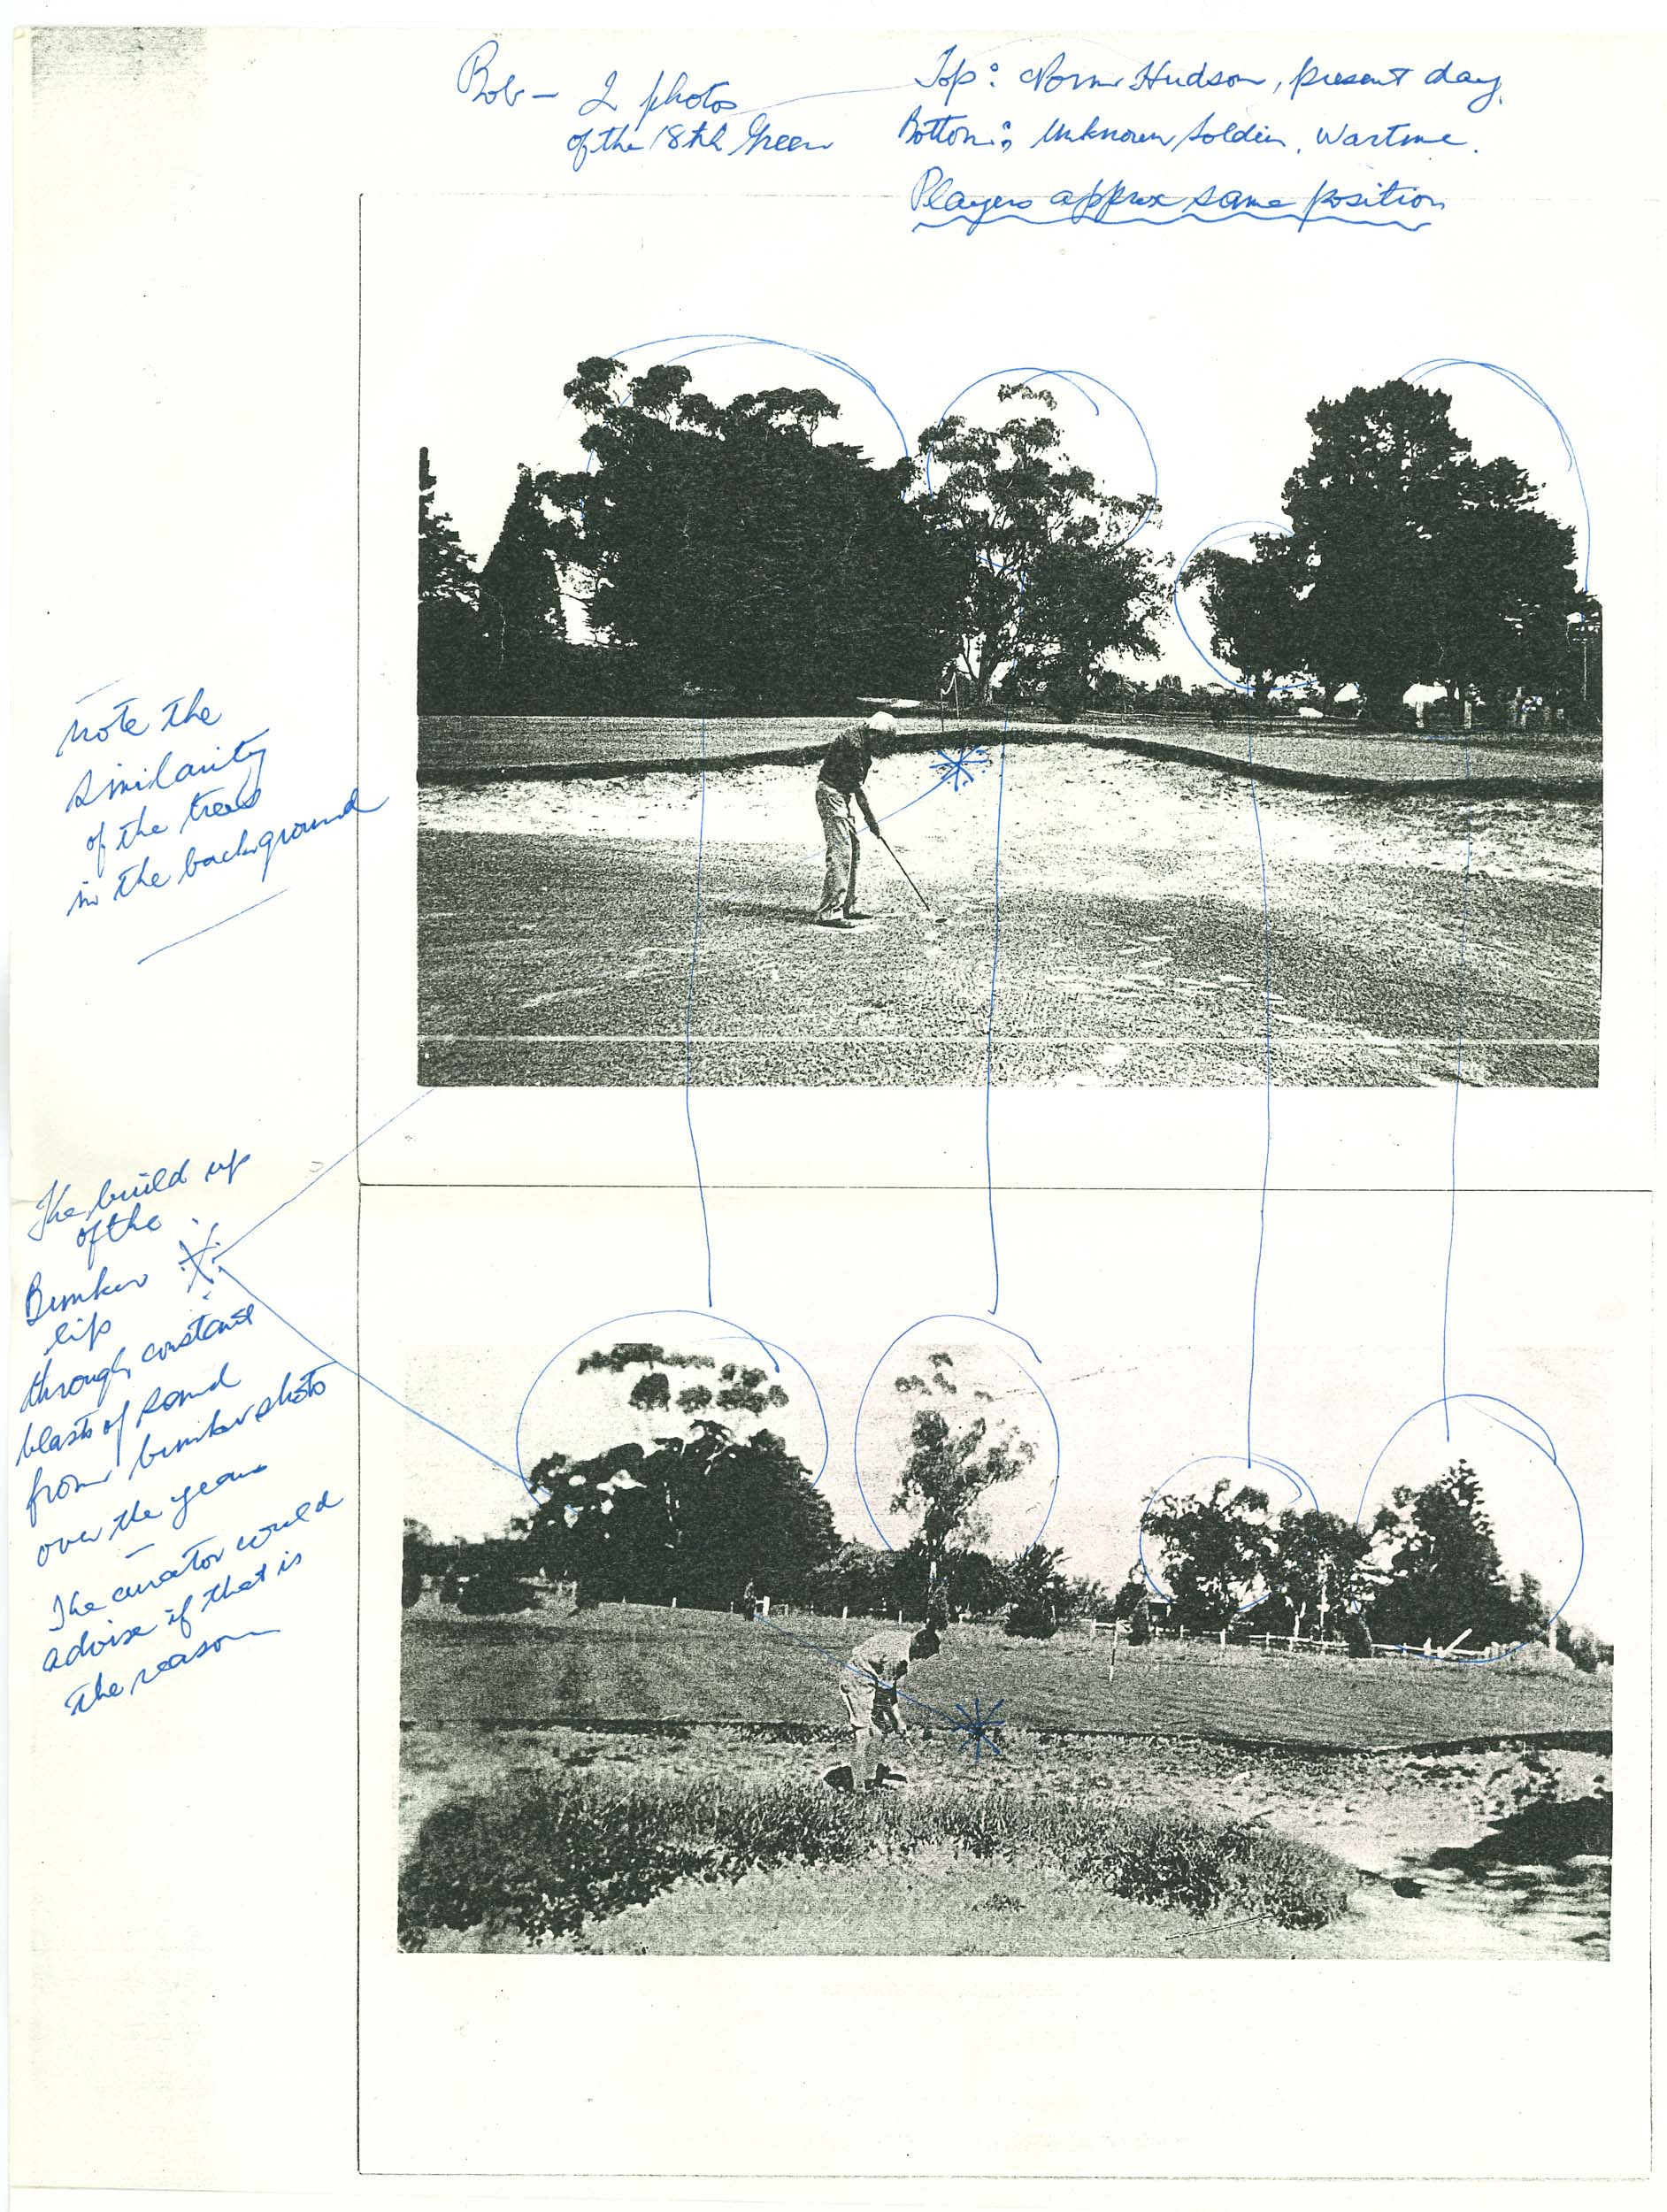 Bob — 2 photos
of the 18th Green
Top: Norm Hudson, present day.
Bottom: Unknown Soldier, Wartime.
Players approx same position
note the
similarity
of the trees
in the background
The build up
of the
Bunker
lip
through constant
blasts of sand
from bunker shots
over the years
—
The curator could
advise if that is
the reason